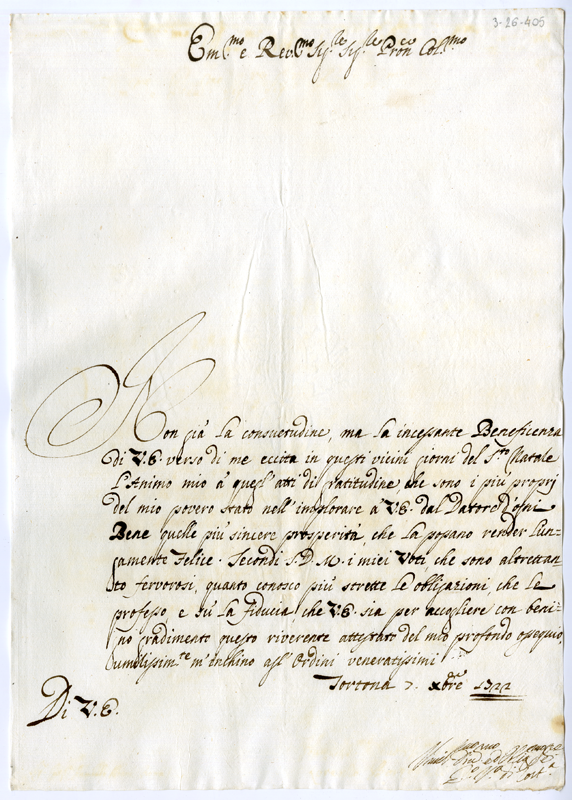 3-26-405
Em.mo e Rev.mo Sig.re Sig.re Pron Col.mo
Non già la consuetudine, ma la incessante Beneficenza
di V.E. verso di me eccita in questi vicini giorni del S.to Natale
L'Animo mio a quegl'atti di gratitudine, che sono i più proprj
del mio povero stato nell'implorare a V.E. dal Datore d'ogni
Bene quelle più sincere prosperità che la possano render lun-
gamente Felice. Secondi S.D.M. i miei Voti, che sono altrettan-
to fervorosi, quanto conosco più strette le obligazioni, che Le
professo e sù la Fiducia che V.E. sia per accogliere con beni-
no gradimento questo riverente attestato del mio profondo ossequio,
umilissim.te m'inchino agl'Ordini veneratissimi
Tortona 7. Xbre 1722
Di V.E.